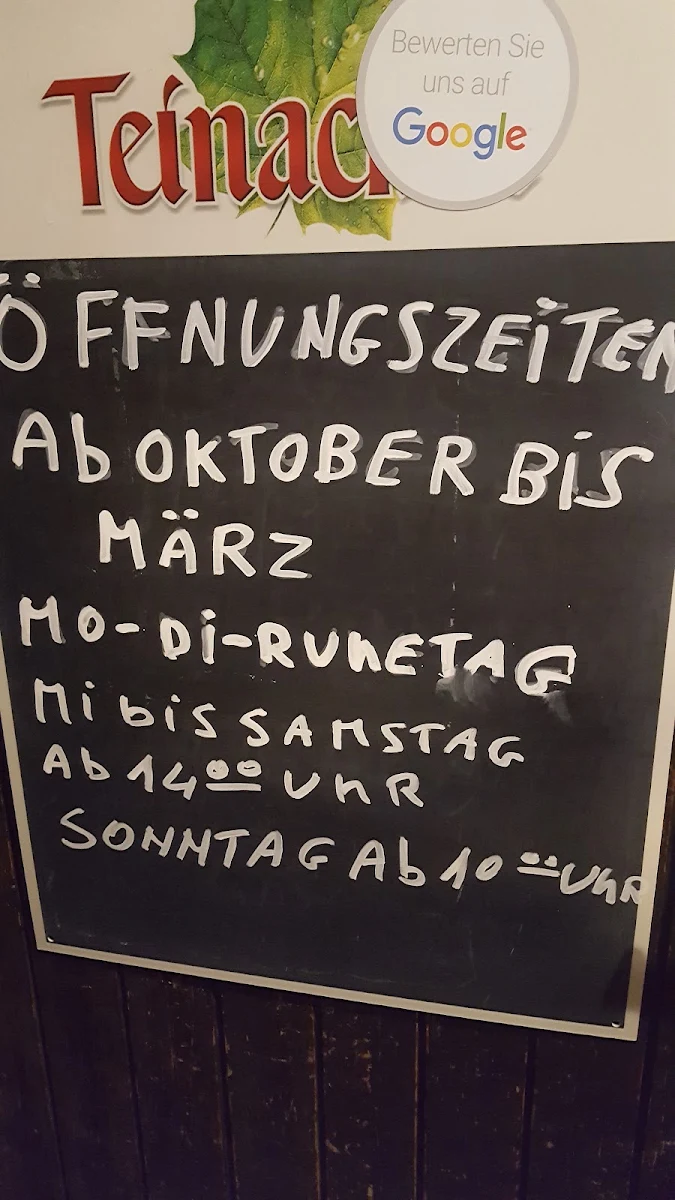 Teinac
Bewerten Sie
uns auf
Google
ÖFFNUNGSZEITEN
Ab OKTOBER BIS
MÄRZ
MO-Di-RUhETAG
Mi biS SAMSTAG
Ab 14⁰⁰ UhR
SONNTAG Ab 10⁰⁰ UhR